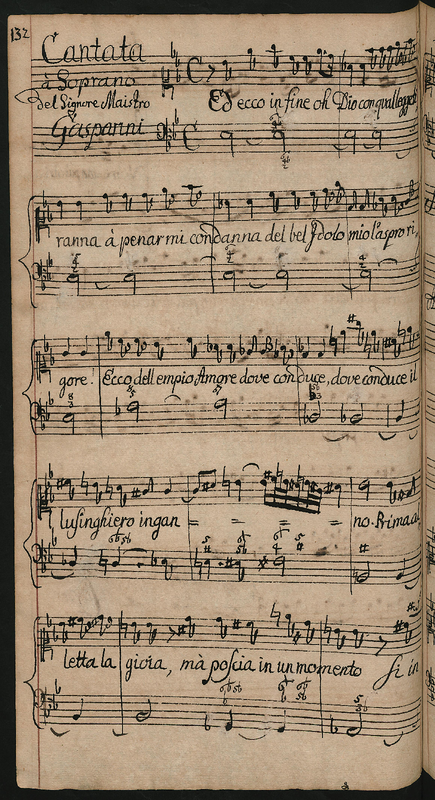 132
Cantata
à Soprano
del Signore Maistro
Gasparini
Ed ecco in fine oh Dio con qual legge ti
ranna à penar mi condanna del bel Idolo mio l'aspro ri,
gore! Ecco dell empio Amore dove conduce, dove conduce il
lusinghiero ingan = = = = no. Prima al
letta la gioia, mà poscia in un momento si in